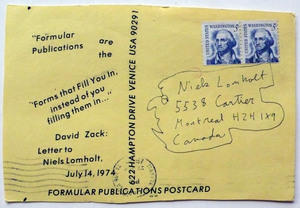 "Formular
Publications are
the
"Forms that Fill You In,
instead of you
filling them in..."
David Zack:
Letter to
Niels Lomholt,
July 14, 1974
FORMULAR PUBLICATIONS POSTCARD
622 HAMPTON DRIVE VENICE USA 90291
UNITED STATES
WASHINGTON
UNITED STATES
WASHINGTON
Niels Lomholt
5538 Cartier
Montreal H2H 1X9
Canada